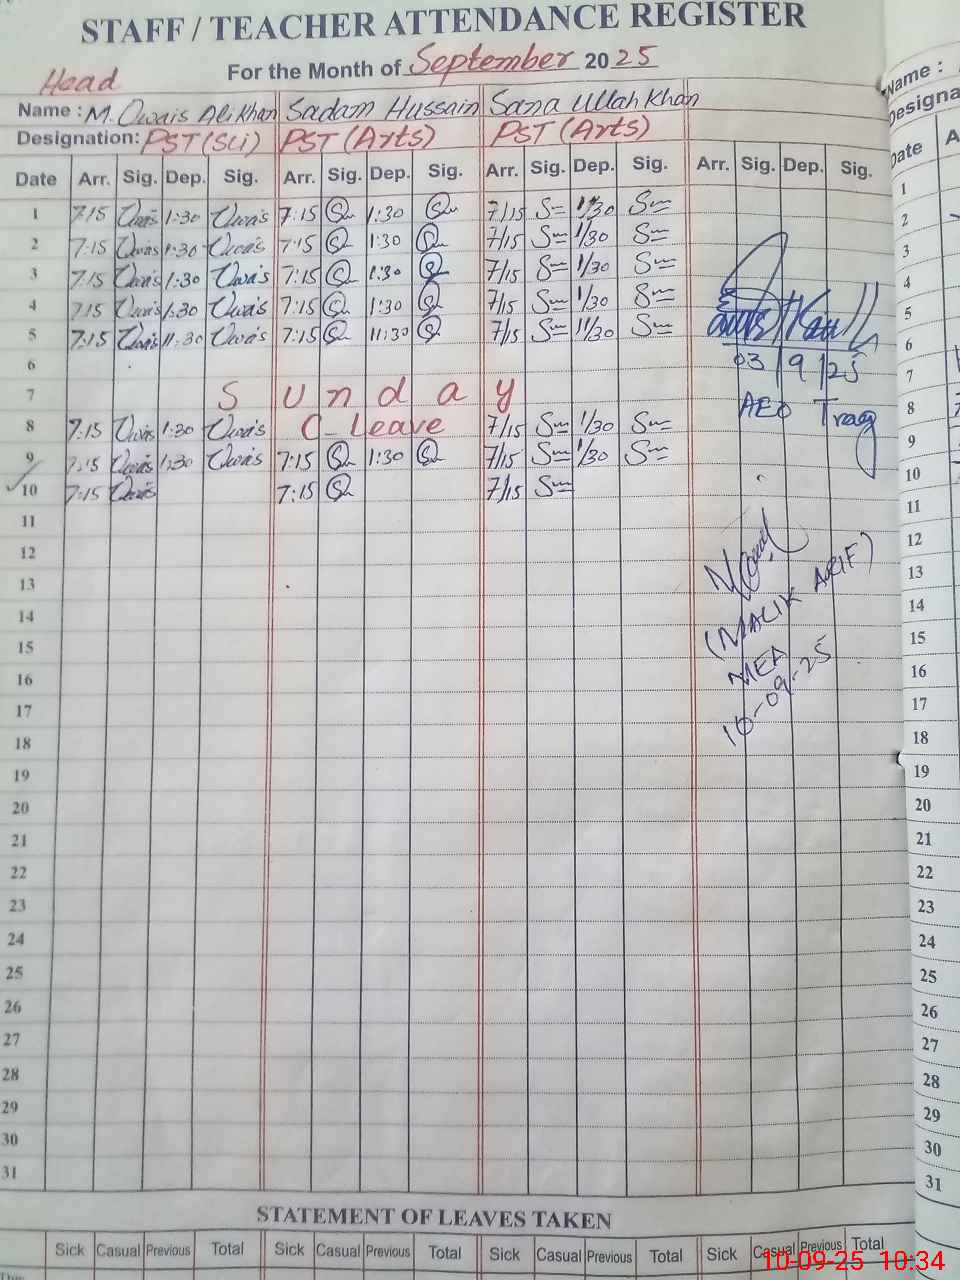 STAFF / TEACHER ATTENDANCE REGISTER
For the Month of September 2025
Head
Name : M. Owais Ali Khan Sadam Hussain Sana Ullah Khan
Designation: PST (Sci) PST (Arts) PST (Arts)
Date Arr. Sig. Dep. Sig. Arr. Sig. Dep. Sig. Arr. Sig. Dep. Sig. Arr. Sig. Dep. Sig.
1 7:15 Owais 1:30 Owais 7:15 1:30 7/15 1/30
2 7:15 Owais 1:30 Owais 7:15 1:30 7/15 1/30
3 7:15 Owais 1:30 Owais 7:15 1:30 7/15 1/30
4 7:15 Owais 1:30 Owais 7:15 1:30 7/15 1/30
5 7:15 Owais 11:30 Owais 7:15 11:30 7/15 11/30
6
7 Sunday
8 7:15 Owais 1:30 Owais C-Leave 7/15 1/30
9 7:15 Owais 1:30 Owais 7:15 1:30 7/15 1/30
10 7:15 Owais 7:15 7/15
11
12
13
14
15
16
17
18
19
20
21
22
23
24
25
26
27
28
29
30
31
03/9/25
AEO
(MALIK ARIF)
MEA
10-09-25
STATEMENT OF LEAVES TAKEN
Sick Casual Previous Total Sick Casual Previous Total Sick Casual Previous Total Sick Casual Previous Total
Name :
Designa
Date A
1
2
3
4
5
6
7
8
9
10
11
12
13
14
15
16
17
18
19
20
21
22
23
24
25
26
27
28
29
30
31
10-09-25 10:34